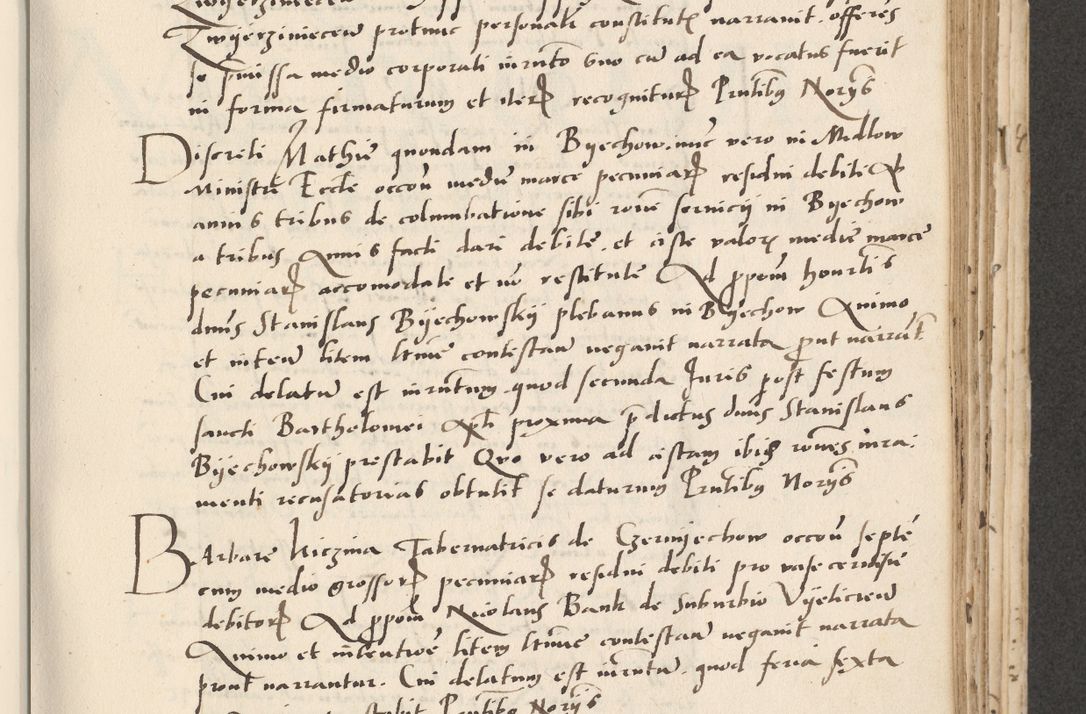 Zwyerziniecen̄ protunc personali constitutꝭ narravit. offeres
se p̄missa medio corporali iurn̄to suo cū ad ea vocatus fuerit
in forma firmaturum et iterꝝ recogniturꝝ Pn̄tibꝫ Norijs
Discreti Mathie quondam in Byechow. nūc vero in Mідlow
Ministri Eccl̄e occoū medie marce pecuniarꝝ residui debiti ꝓ
annis tribus de columbatione sibi rōne servicij in Byechow
a tribus Annis facti dari debite. et ciste valorꝭ medie marce
pecuniarꝝ accomodate et nō restitute Ad ꝓpoūm honrlis
dnūs Stanislaus Byechowskij plebanus in Byechow Animo
et inten̄ litem ltīme contestan̄ negavit narrata ꝓut narrāt̄
Cui delatū est iurn̄tum. quod secunda Juris post festum
sancti Bartholomei Apl̄i proxima p̄dictus dnūs Stanislaus
Byechowskij prestabit Quo vero ad cistam ibidē rōnes iura
menti recusatorias obtulit se daturum Pn̄tibꝫ Norijs
Barbare Kiczina Tabernatricis de Czernyechow occoū septē
cum medio grossorꝝ pecuniarꝝ residui debiti pro vase cervisie
debitorꝝ Ad ꝓpoūm Nicolaus Bank de Suburbio Vyelicien̄
Animo et intentiōe litem ltīme contestan̄ negavit narrata
prout narrantur. Cui delatum est iurn̄tum. quod feria sexta
Pn̄tibꝫ Norijs